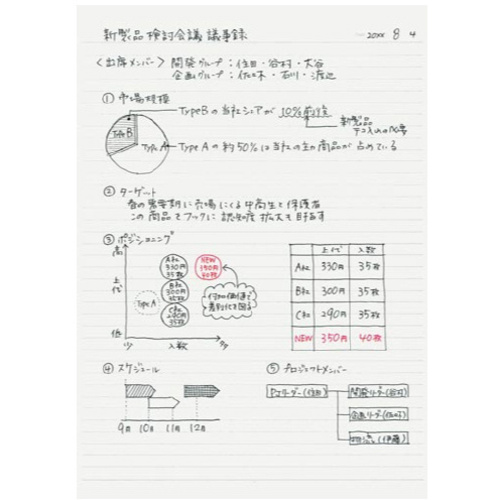 新製品検討会議 議事録
20XX 8 4
〈出席メンバー〉 開発グループ：住田・谷村・大谷
企画グループ：佐々木・石川・渡辺
① 市場規模
TypeBの当社シェアが10%前後
新製品
テコ入れの必要
TypeB
TypeA
TypeAの約50%は当社の主力商品が占めている
② ターゲット
春の需要期に売場にくる中高生と保護者
この商品でフックに認知度拡大も目指す
③ ポジショニング
高
上代
低
少
入数
多
TypeA
A社
330円
35枚
B社
300円
35枚
C社
290円
35枚
NEW
350円
40枚
付加価値で
差別化を図る
上代 入数
A社 330円 35枚
B社 300円 35枚
C社 290円 35枚
NEW 350円 40枚
④ スケジュール
9月 10月 11月 12月
⑤ プロジェクトメンバー
PJリーダー(住田)
開発リーダー(谷村)
企画リーダー(佐々木)
(伊藤)